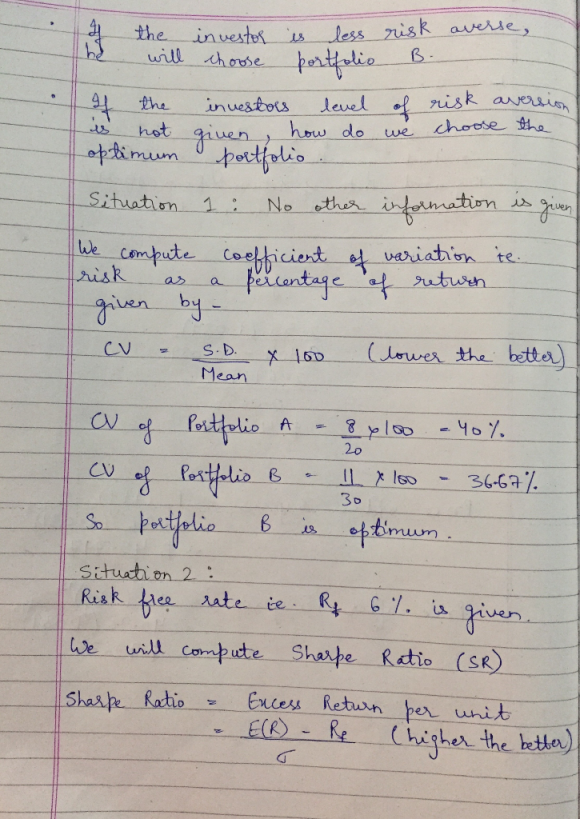 · If the investor is less risk averse,
he will choose portfolio B.
· If the investors level of risk aversion
is not given, how do we choose the
optimum portfolio.
Situation 1 : No other information is given
We compute coefficient of variation ie.
risk as a percentage of return
given by -
CV = S.D. / Mean × 100 (lower the better)
CV of Portfolio A = 8/20 × 100 = 40%.
CV of Portfolio B = 11/30 × 100 = 36.67%.
So portfolio B is optimum.
Situation 2 :
Risk free rate ie. Rf 6%. is given.
We will compute Sharpe Ratio (SR)
Sharpe Ratio = Excess Return per unit
= E(R) - Rf / σ (higher the better)